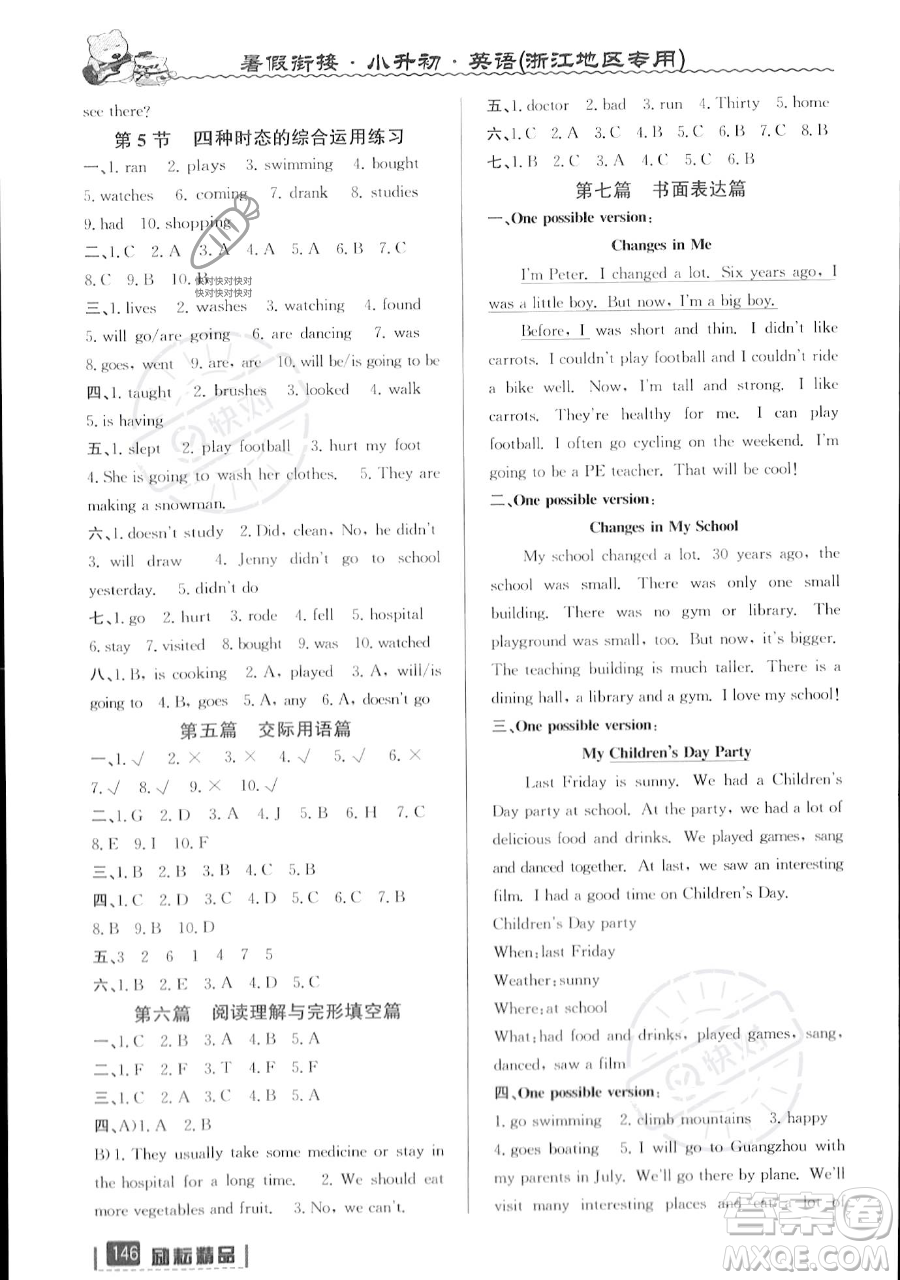 暑假衔接·小升初·英语(浙江地区专用)
see there?
第5节 四种时态的综合运用练习
一、1. ran 2. plays 3. swimming 4. bought
5. watches 6. coming 7. drank 8. studies
9. had 10. shopping
二、1. C 2. A 3. A 4. A 5. B 6. B 7. C
8. C 9. B 10. B
快对快对快对
快对快对快对
三、1. lives 2. washes 3. watching 4. found
5. will go/are going 6. are dancing 7. was
8. goes, went 9. are, are 10. will be/is going to be
四、1. taught 2. brushes 3. looked 4. walk
5. is having
五、1. slept 2. play football 3. hurt my foot
4. She is going to wash her clothes. 5. They are
making a snowman.
六、1. doesn't study 2. Did, clean, No, he didn't
3. will draw 4. Jenny didn't go to school
yesterday. 5. didn't do
七、1. go 2. hurt 3. rode 4. fell 5. hospital
6. stay 7. visited 8. bought 9. was 10. watched
八、1. B, is cooking 2. A, played 3. A, will/is
going to 4. B, goes 5. A, any 6. A, doesn't go
第五篇 交际用语篇
一、1. √ 2. × 3. × 4. √ 5. √ 6. ×
7. √ 8. √ 9. × 10. √
二、1. G 2. D 3. C 4. B 5. A 6. J 7. H
8. E 9. I 10. F
三、1. B 2. C 3. A 4. C 5. B
四、1. C 2. D 3. A 4. C 5. A 6. B 7. A
8. B 9. B 10. D
五、3 2 6 1 4 7 5
六、1. B 2. E 3. A 4. D 5. C
第六篇 阅读理解与完形填空篇
一、1. C 2. B 3. C 4. B 5. A
二、1. F 2. F 3. T 4. T 5. F
三、1. B 2. B 3. C 4. A 5. C
四、A)1. A 2. B
B) 1. They usually take some medicine or stay in
the hospital for a long time. 2. We should eat
more vegetables and fruit. 3. No, we can't.
146 励耘精品
五、1. doctor 2. bad 3. run 4. Thirty 5. home
六、1. C 2. A 3. B 4. A 5. C
七、1. C 2. A 3. A 4. B 5. C
第七篇 书面表达篇
一、One possible version:
Changes in Me
I'm Peter. I changed a lot. Six years ago, I
was a little boy. But now, I'm a big boy.
Before, I was short and thin. I didn't like
carrots. I couldn't play football and I couldn't ride
a bike well. Now, I'm tall and strong. I like
carrots. They're healthy for me. I can play
football. I often go cycling on the weekend. I'm
going to be a PE teacher. That will be cool!
二、One possible version:
Changes in My School
My school changed a lot. 30 years ago, the
school was small. There was only one small
building. There was no gym or library. The
playground was small, too. But now, it's bigger.
The teaching building is much taller. There is a
dining hall, a library and a gym. I love my school!
三、One possible version:
My Children's Day Party
Last Friday is sunny. We had a Children's
Day party at school. At the party, we had a lot of
delicious food and drinks. We played games, sang
and danced together. At last, we saw an interesting
film. I had a good time on Children's Day.
Children's Day party
When: last Friday
Weather: sunny
Where: at school
What: had food and drinks, played games, sang,
danced, saw a film
四、One possible version:
1. go swimming 2. climb mountains 3. happy
4. goes boating 5. I will go to Guangzhou with
my parents in July. We'll go there by plane. We'll
visit many interesting places and eat a lot of
快对
快对
答案圈
MXQE.COM